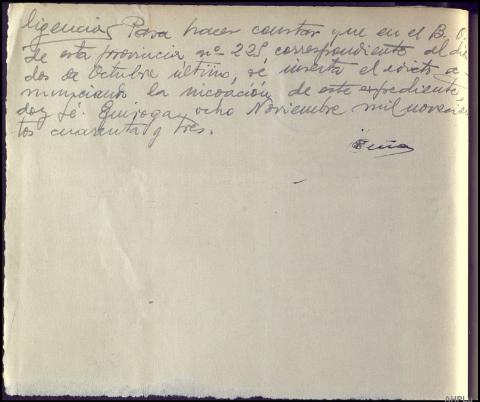 ligencia, Para hacer constar que en el B. O.
de esta provincia nº 225, correspondiente al dia
dos de Octubre último, se inserta el edicto a-
nunciando la incoación de este expediente
doy fé. Quiroga, ocho Noviembre mil novecien
tos cuarenta y tres.